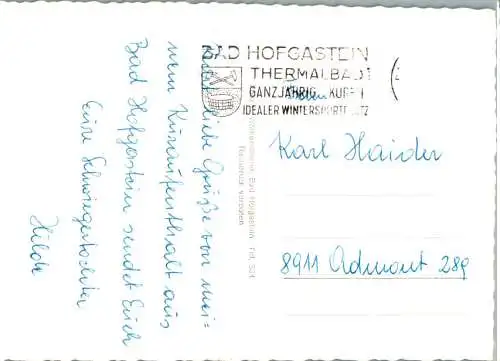 BAD HOFGASTEIN
THERMALBAD
GANZJÄHRIG KUREN
IDEALER WINTERSPORTPLATZ
Fam.
Karl Haider
8911 Admont 289
liebe Grüße von mei=
nem Kuraufenthalt aus
Bad Hofgastein sendet Euch
Eure Schwiegertochter
Hilde
Bad Hofgastein Tel.
Nachdruck verboten